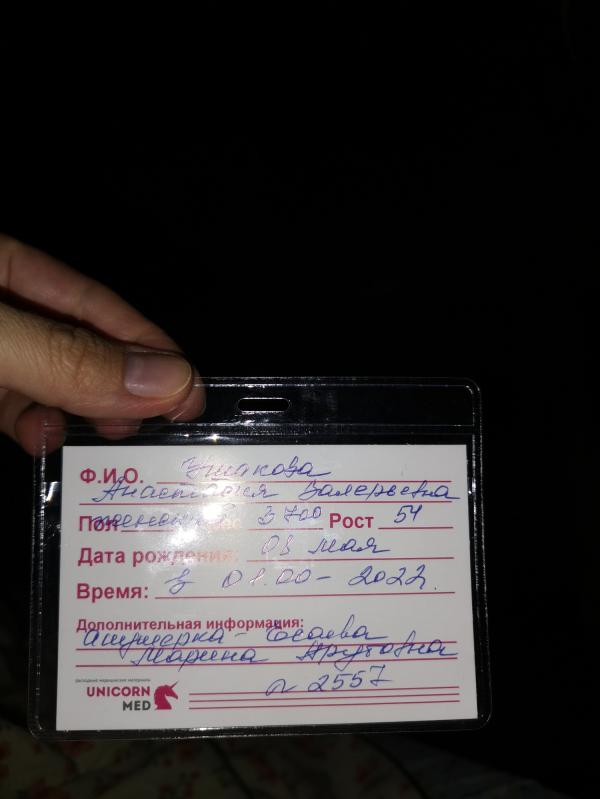 Ф.И.О. Ушакова
Анастасия Валерьевна
Пол женский Вес 3700 Рост 54
Дата рождения: 08 мая
Время: в 01.00 - 2022.
Дополнительная информация:
акушерка -
Марина
расходные медицинские материалы
UNICORN
MED
2557